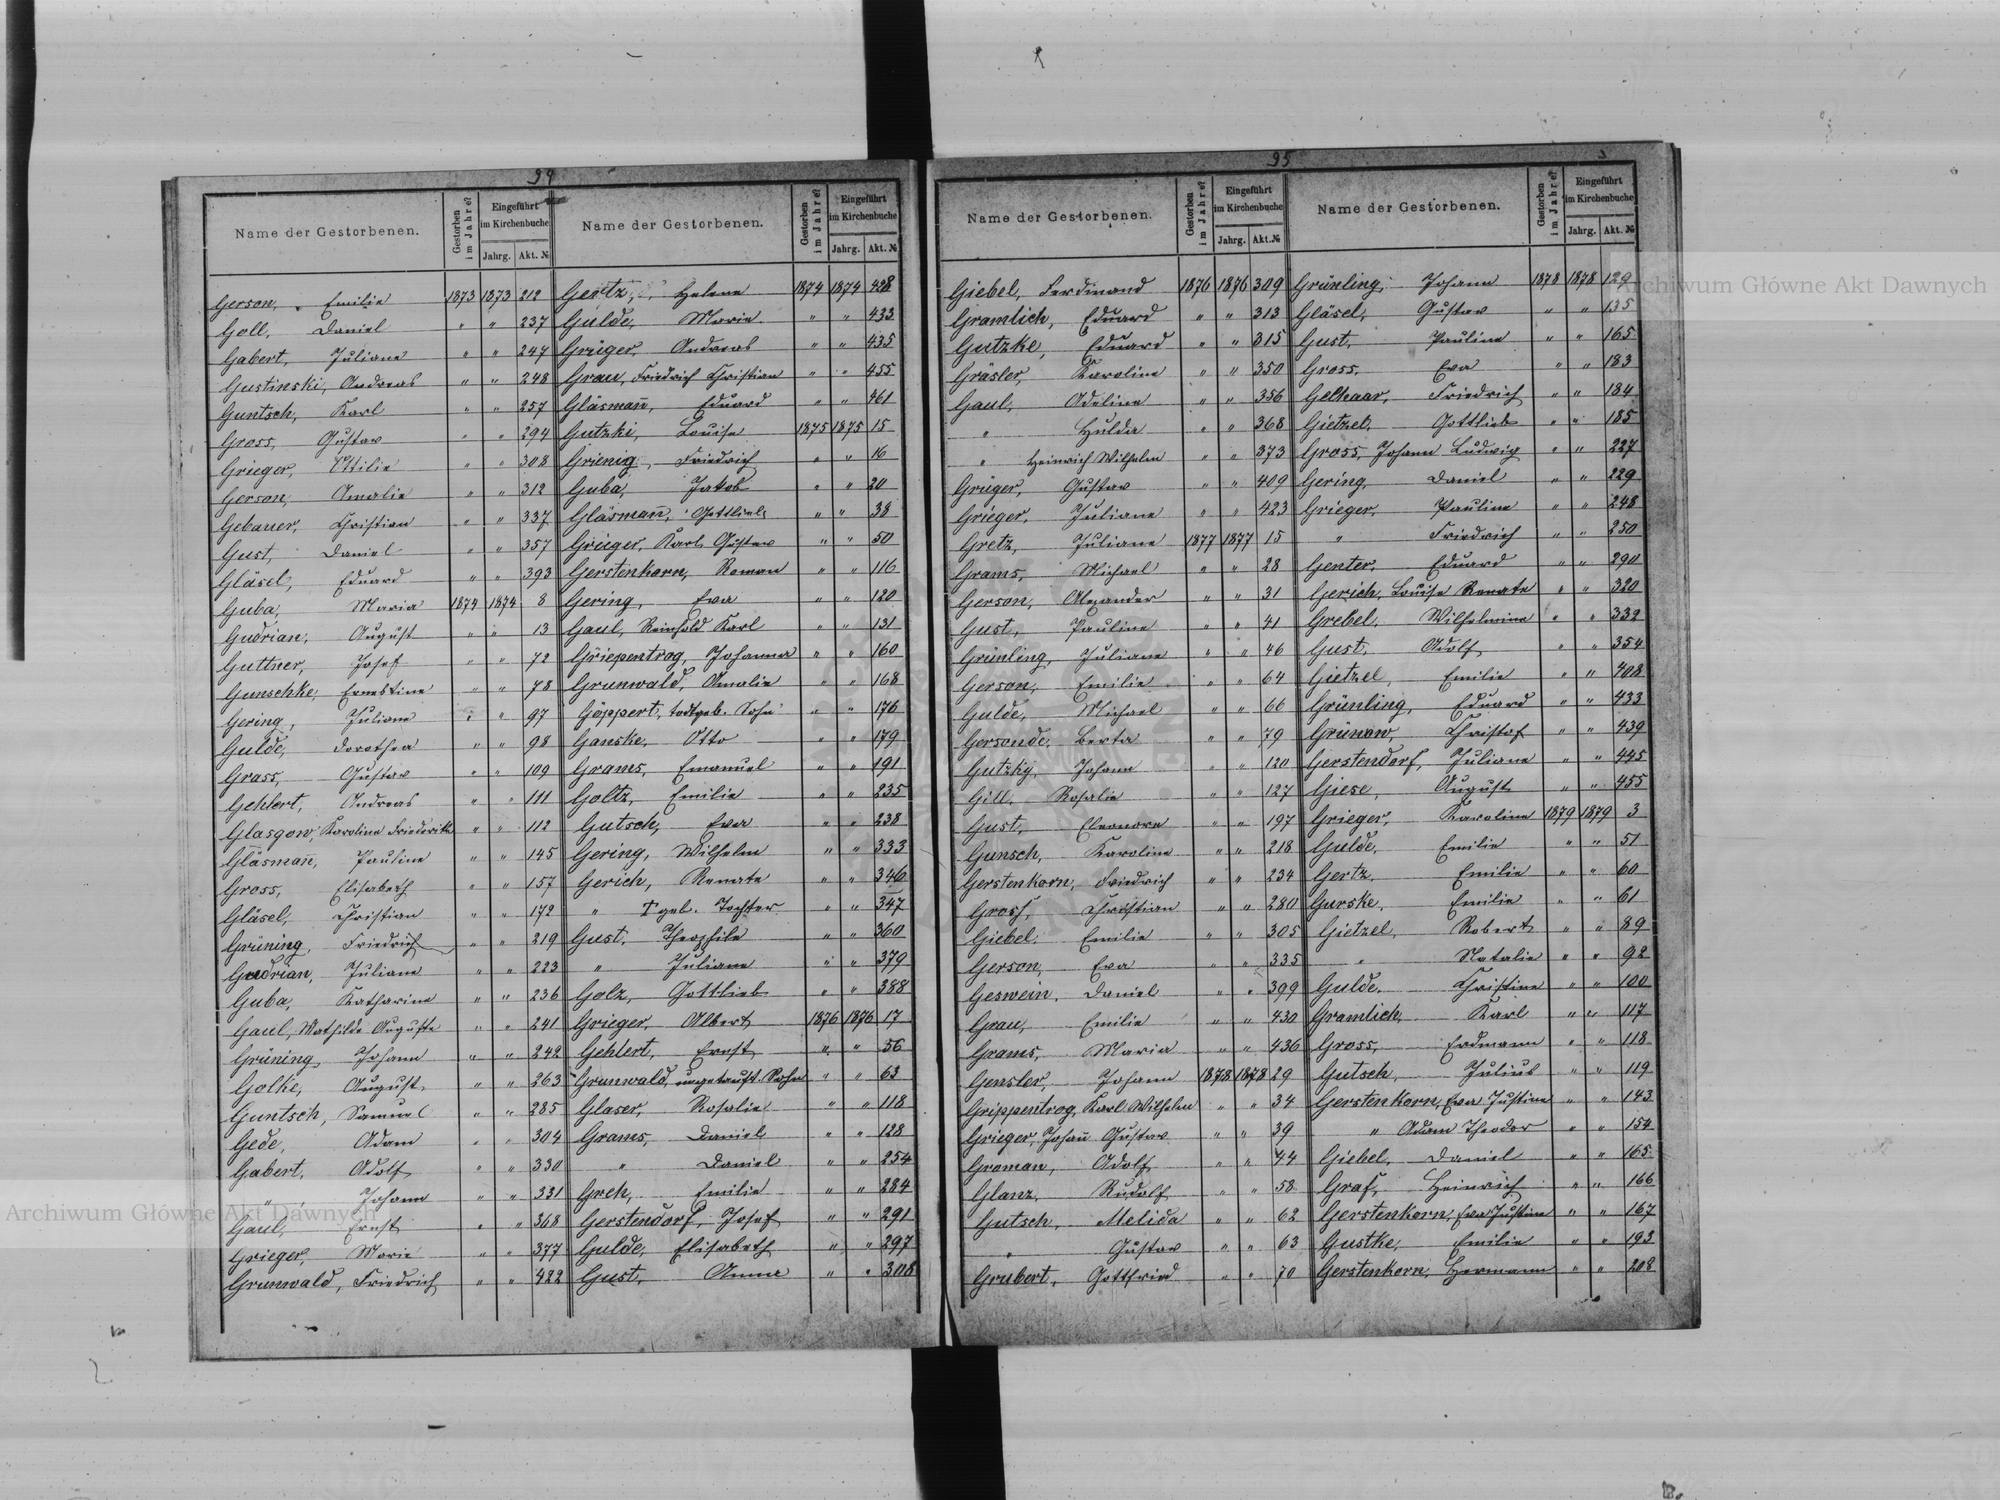 94
Name der Gestorbenen. Gestorben im Jahre? Eingeführt im Kirchenbuche Jahrg. Akt. №
Gerson, Emilie 1873 1873 212
Goll, Daniel " " 237
Gabert, Juliane " " 247
Gustinski, Andreas " " 248
Guntsch, Karl " " 257
Gross, Gustav " " 294
Grieger, Ottilie " " 308
Gerson, Amalie " " 312
Gebauer, Christian " " 337
Gust, Daniel " " 357
Gläsel, Eduard " " 393
Guba, Maria 1874 1874 8
Gudrian, August " " 13
Guttner, Josef " " 72
Gunschke, Ernestine " " 78
Gering, Juliane " " 97
Gulde, Dorothea " " 98
Grass, Gustav " " 109
Gehlert, Andreas " " 111
Glasgow, Karoline Friederike " " 112
Gläsmañ, Pauline " " 145
Gross, Elisabeth " " 157
Gläsel, Christian " " 172
Grüning, Friedrich " " 219
Gudrian, Juliane " " 223
Guba, Katharine " " 236
Gaul, Mathilde Auguste " " 241
Grüning, Johann " " 242
Golke, August " " 263
Guntsch, Samuel " " 285
Gede, Adam " " 304
Gabert, Adolf " " 330
" Johann " " 331
Gaul, Ernst " " 368
Grieger, Marie " " 377
Grunwald, Friedrich " " 422
Name der Gestorbenen. Gestorben im Jahre? Eingeführt im Kirchenbuche Jahrg. Akt. №
Gertz, Helene 1874 1874 428
Gulde, Marie " " 433
Grüger, Andreas " " 435
Grau, Friedrich Christian " " 455
Gläsmañ, Eduard " " 461
Gutzki, Louise 1875 1875 15
Grienig, Friedrich " " 16
Guba, Jakob " " 20
Gläsmañ, Gottlieb " " 38
Grieger, Karl Gustav " " 50
Gerstenkorn, Roman " " 116
Gering, Eva " " 120
Gaul, Reinhold Karl " " 131
Griepentrog, Johanna " " 160
Grunwald, Amalie " " 168
Göppert, todtgeb. Sohn " " 176
Ganske, Otto " " 179
Grams, Emanuel " " 191
Goltz, Emilie " " 235
Gutsch, Eva " " 238
Gering, Wilhelm " " 333
Gerich, Renate " " 346
" † geb. Tochter " " 347
Gust, Theophile " " 360
" Juliane " " 379
Golz, Gottlieb " " 388
Grieger, Albert 1876 1876 17
Gehlert, Ernst " " 56
Grunwald, ungetauft. Sohn " " 63
Glaser, Rosalie " " 118
Grams, Daniel " " 128
" Daniel " " 254
Greh, Emilie " " 284
Gerstendorf, Josef " " 291
Gulde, Elisabeth " " 297
Gust, Anna " " 308
95
Name der Gestorbenen. Gestorben im Jahre? Eingeführt im Kirchenbuche Jahrg. Akt. №
Giebel, Ferdinand 1876 1876 309
Gramlich, Eduard " " 313
Gutzke, Eduard " " 315
Gräsler, Karoline " " 350
Gaul, Adeline " " 356
" Hulda " " 368
" Heinrich Wilhelm " " 373
Grüger, Gustav " " 409
Grieger, Juliane " " 423
Gretz, Juliane 1877 1877 15
Grams, Michael " " 28
Gerson, Alexander " " 31
Gust, Pauline " " 41
Grünling, Juliane " " 46
Gerson, Emilie " " 64
Gulde, Michael " " 66
Gersonde, Berta " " 79
Gutzky, Johann " " 120
Gill, Rosalie " " 127
Gust, Eleonore " " 197
Gunsch, Karoline " " 218
Gerstenkorn, Friedrich " " 234
Gross, Christian " " 280
Giebel, Emilie " " 305
Gerson, Eva " " 335
Geswein, Daniel " " 399
Grau, Emilie " " 430
Grams, Maria " " 436
Gensler, Johann 1878 1878 29
Grippentrog, Karl Wilhelm " " 34
Grieger, Johañ Gustav " " 39
Groman, Adolf " " 44
Glanz, Rudolf " " 58
Gutsch, Melida " " 62
" Gustav " " 63
Grubert, Gottfried " " 70
Name der Gestorbenen. Gestorben im Jahre? Eingeführt im Kirchenbuche Jahrg. Akt. №
Grünling, Johann 1878 1878 129
Gläsel, Gustav " " 135
Gust, Pauline " " 165
Gross, Eva " " 183
Gelhaar, Friedrich " " 184
Gietzel, Gottlieb " " 185
Gross, Johann Ludwig " " 227
Gering, Daniel " " 229
Grieger, Pauline " " 248
" Friedrich " " 250
Genter, Eduard " " 290
Gerich, Louise Renate " " 320
Grebel, Wilhelmine " " 332
Gust, Adolf " " 354
Gietzel, Emilie " " 408
Grünling, Eduard " " 433
Grünow, Christof " " 439
Gerstendorf, Juliane " " 445
Giese, August " " 455
Grieger, Karoline 1879 1879 3
Gulde, Emilie " " 51
Gertz, Emilie " " 60
Gurske, Emilie " " 61
Gietzel, Robert " " 89
" Natalie " " 92
Gulde, Christine " " 100
Gramlich, Karl " " 117
Gross, Erdmann " " 118
Gutsch, Julius " " 119
Gerstenkorn, Eva Justine " " 143
" Adam Theodor " " 154
Giebel, Daniel " " 165
Graf, Heinrich " " 166
Gerstenkorn, Eva Justine " " 167
Gustke, Emilie " " 193
Gerstenkorn, Hermann " " 208
Archiwum Główne Akt Dawnych
Archiwum Główne Akt Dawnych